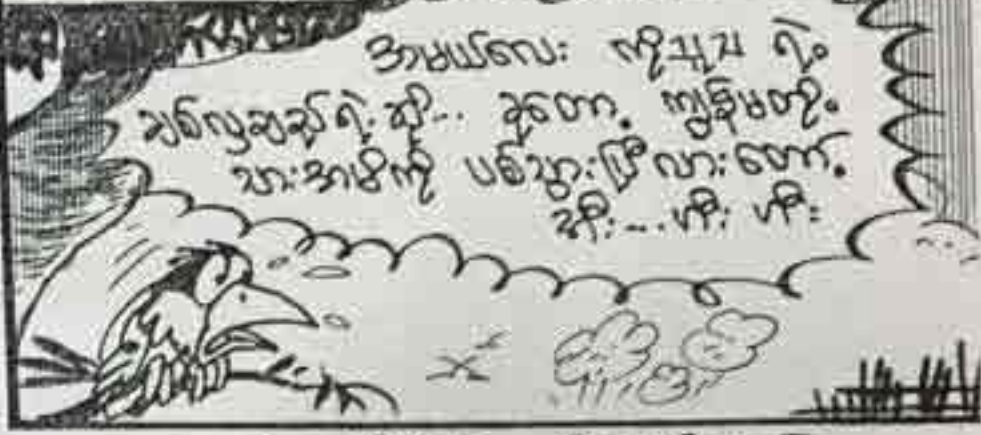 အမယ်လေး ကိုသူသ ရဲ့
ချစ်လှချည်ရဲ့ ဆို... ခုတော့ ကျွန်မတို့
သားအမိကို ပစ်သွားပြီလားတော့်
အီး...ဟီး ဟီး